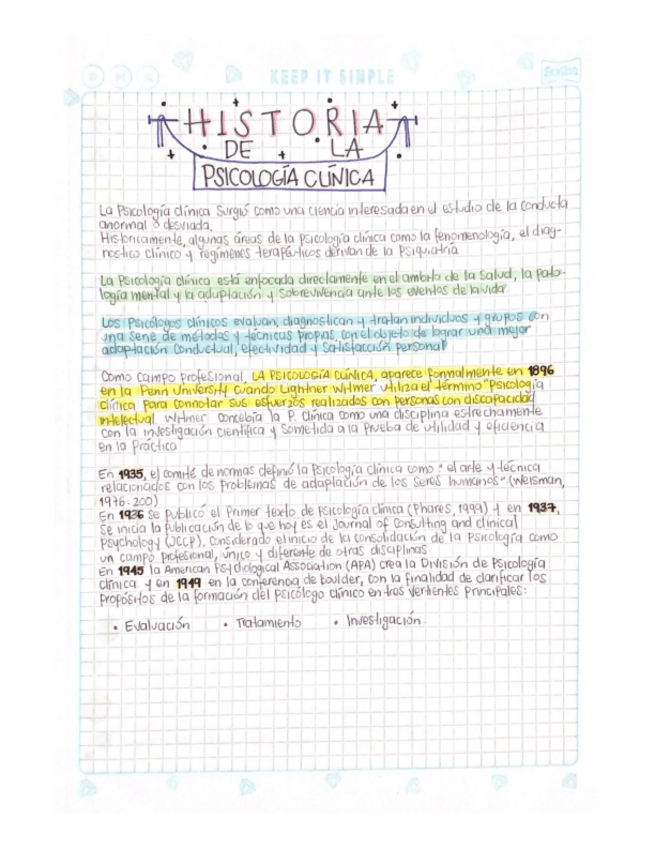 KEEP IT SIMPLE
Scribe
HISTORIA
DE LA
PSICOLOGÍA CLÍNICA
La Psicología clínica Surgió como una ciencia interesada en el estudio de la conducta
anormal o desviada.
Históricamente, algunas áreas de la Psicología clínica como la fenomenología, el diag-
nostico clínico y regímenes terapéuticos derivan de la Psiquiatría
La Psicología clínica está enfocada directamente en el ambito de la Salud, la pato-
logía mental y la adaptación y Sobrevivencia ante los eventos de la vida
Los Psicólogos clínicos evaluan, diagnostican y tratan individuos y grupos con
una serie de métodos y técnicas propias, con el objeto de lograr una mejor
adaptación conductual, efectividad y satisfacción personal
Como campo profesional, LA PSICOLOGÍA CLÍNICA, aparece formalmente en 1896
en la Penn University Cuando Lightner Witmer utiliza el término "Psicología
clínica, para connotar sus esfuerzos realizados con personas con discapacidad
intelectual Witmer concebía la P. Clínica como una disciplina estrechamente
con la investigación científica y sometida a la Prueba de utilidad y eficiencia
en la Práctica
En 1935, el comité de normas definió la Psicología clínica como: "el arte y técnica
relacionados con los problemas de adaptación de los seres humanos" (Weisman,
1976: 200)
En 1936 se Publicó el Primer texto de Psicología clínica (Phares, 1999) y en 1937,
Se inicia la Publicación de lo que hoy es el Journal of Consulting and clinical
Psychology (JCCP), considerado el inicio de la consolidación de la Psicología como
un campo profesional, único y diferente de otras disciplinas.
En 1945 la American Psychological Association (APA) crea la División de Psicología
Clínica. y en 1949 en la conferencia de boulder, con la finalidad de clarificar los
Propósitos de la formación del Psicólogo clínico en tras vertientes Principales:
• Evaluación • Tratamiento • Investigación.